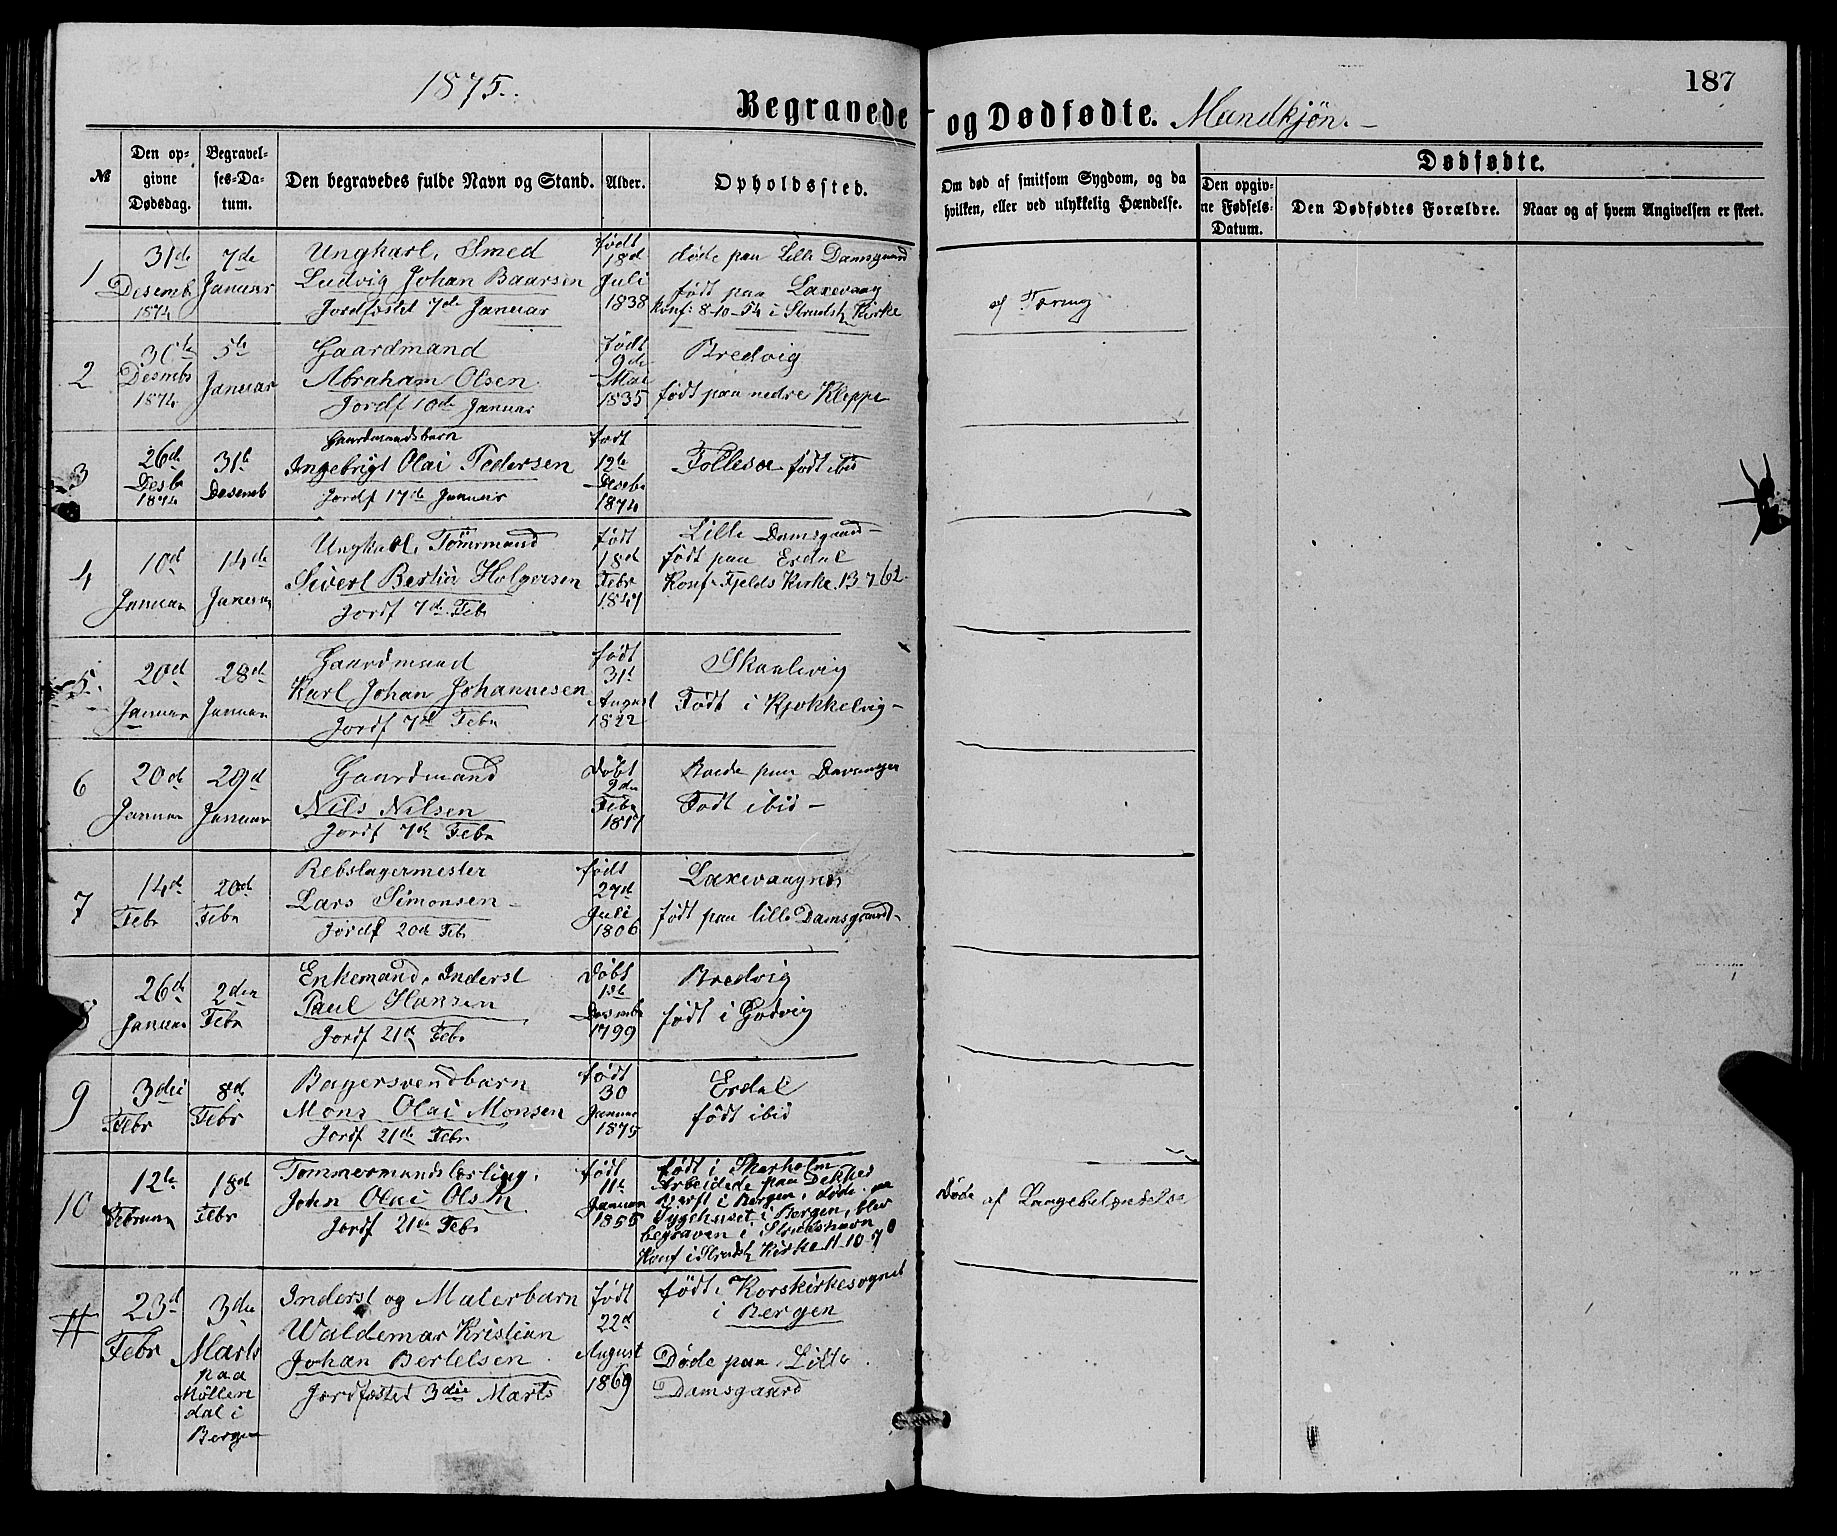 187
1875.
Begravede og Dødfødte. Mandkjön.
№
Den op-
givne
Dødsdag.
Begravel-
ses-Da-
tum.
Den begravedes fulde Navn og Stand.
Alder.
Opholdssted.
Om død af smitsom Sygdom, og da
hvilken, eller ved ulykkelig Hændelse.
Dødfødte.
Den opgiv-
ne Fødsels-
Datum.
Den Dødfødtes Forældre.
Naar og af hvem Angivelsen er skeet.
1
31de
Desemb
1874
7de
Januar
Ungkarl, Smed
Ludvig Johan Baarsen
Jordfæstet 7de Januar
født
18d
Juli
1838
døde paa Lille Damsgaard
født paa Laxevaag
Konf: 8-10-54 i Strudsh Kirke
af Tæring
2
30te
Desmbr
1874
5te
Januar
Gaardmand
Abraham Olsen
Jordf 10de Januar
født
9de
Mai
1835
Bredvig
født paa nedre Kleppe
3
26d
Desbr
1874
31te
Desemb
Gaardmandsbarn
Ingebrigt Olai Pedersen
Jordf 17de Januar
født
12te
Desebr
1874
Follesøe født ibid
4
10d
Januar
14de
Januar
Ungkarl, Tömrmand
Sivert Bertin Holgersen
Jordf 7de Febr
født
18d
Febr
1847
Lille Damsgaard
født paa Erdal
Konf Fjelds Kirke 13-7 62
5.
20d
Januar
28d
Januar
Gaardmand
Karl Johan Johannesen
Jordf 7d Febr
født
31t
August
1822
Skaalevig
Født i Kjøkkelvig
6
20de
Januar
29d
Januar
Gaardmand
Nils Nilsen
Jordf 7de Febr
Døbt
9de
Febr
1817
Født ibid
7
14d
Febr
20d
Febr
Rebslagermester
Lars Simonsen
Jordf 20de Febr
født
27d
Juli
1806
Laxevaagnes
født paa lille Damsgaard
8
26d
Januar
2den
Febr
Enkemand, Inderst
Paul Hansen
Jordf 21d Febr
Døbt
1ste
Desembr
1799
Bredvig
født i Godvig
9
3die
Febr
8d
Febr
Bagersvendbarn
Mons Olai Monsen
Jordf 21de Febr
født
30
Januar
1875
Erdal
født ibid
10
12te
Februar
18d
Febr
Tømmermandslærling,
John Olai Olsen
Jordf 21de Febr
født
11te
Januar
1855
født i Skarholm
Arbeidede paa Dekkes
Værft i Bergen, døde paa
Sygehuset i Bergen, blev
begraven i Strudshavn
Konf i Strudsh Kirke 11-10-70
Døde af Lungebetændelse
11
23d
Febr
3die
Marts
paa
Møllen
dal i
Bergen
Inderst og Malerbarn
Waldemar Kristian
Johan Bertelsen
Jordfæstet 3die Marts
født
22d
August
1869
født i Korskirkesognet
i Bergen
Døde paa Lille
Damsgaard